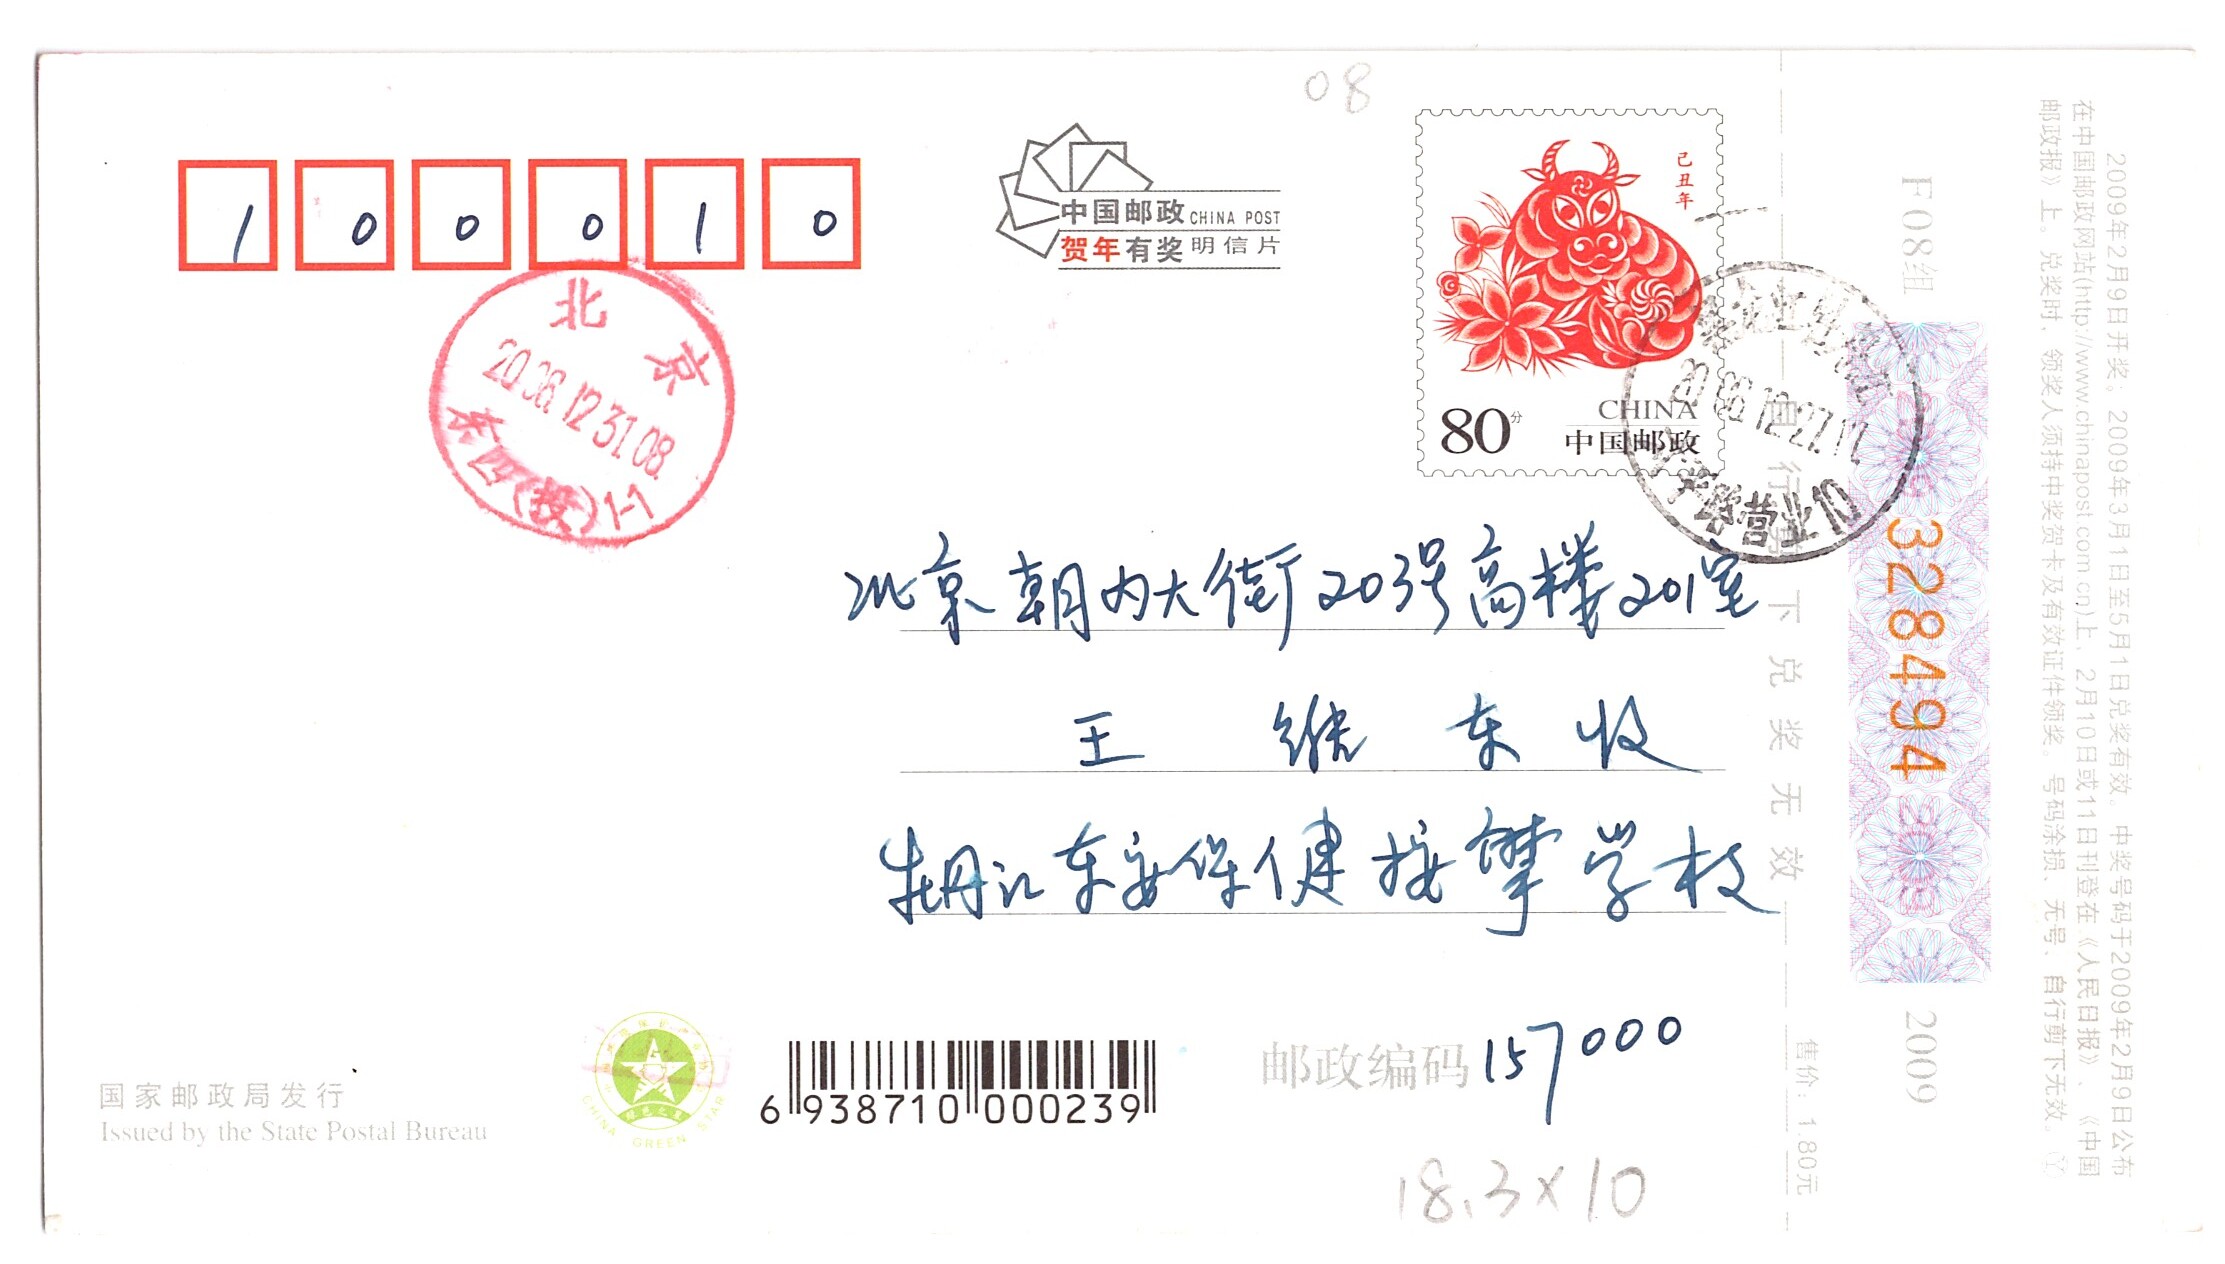 08
1 0 0 0 1 0
中国邮政 CHINA POST
贺年有奖明信片
己丑年
80分
CHINA
中国邮政
北京
2008.12.31.08
东四(投)1-1
北京朝内大街203号高楼201室
王继东收
牡丹江东安保健按摩学校
邮政编码 157000
18.3×10
国家邮政局发行
Issued by the State Postal Bureau
CHINA GREEN STAR
6 938710 000239
自行剪下兑奖无效
售价：1.80元
F08组
328494
2009
2009年2月9日开奖；2009年3月1日至5月1日兑奖有效。中奖号码于2009年2月9日公布
在中国邮政网站(http://www.chinapost.com.cn)上，2月10日或11日刊登在《人民日报》、《中国
邮政报》上。兑奖时，领奖人须持中奖贺卡及有效证件领奖。号码涂损、无号、自行剪下无效。